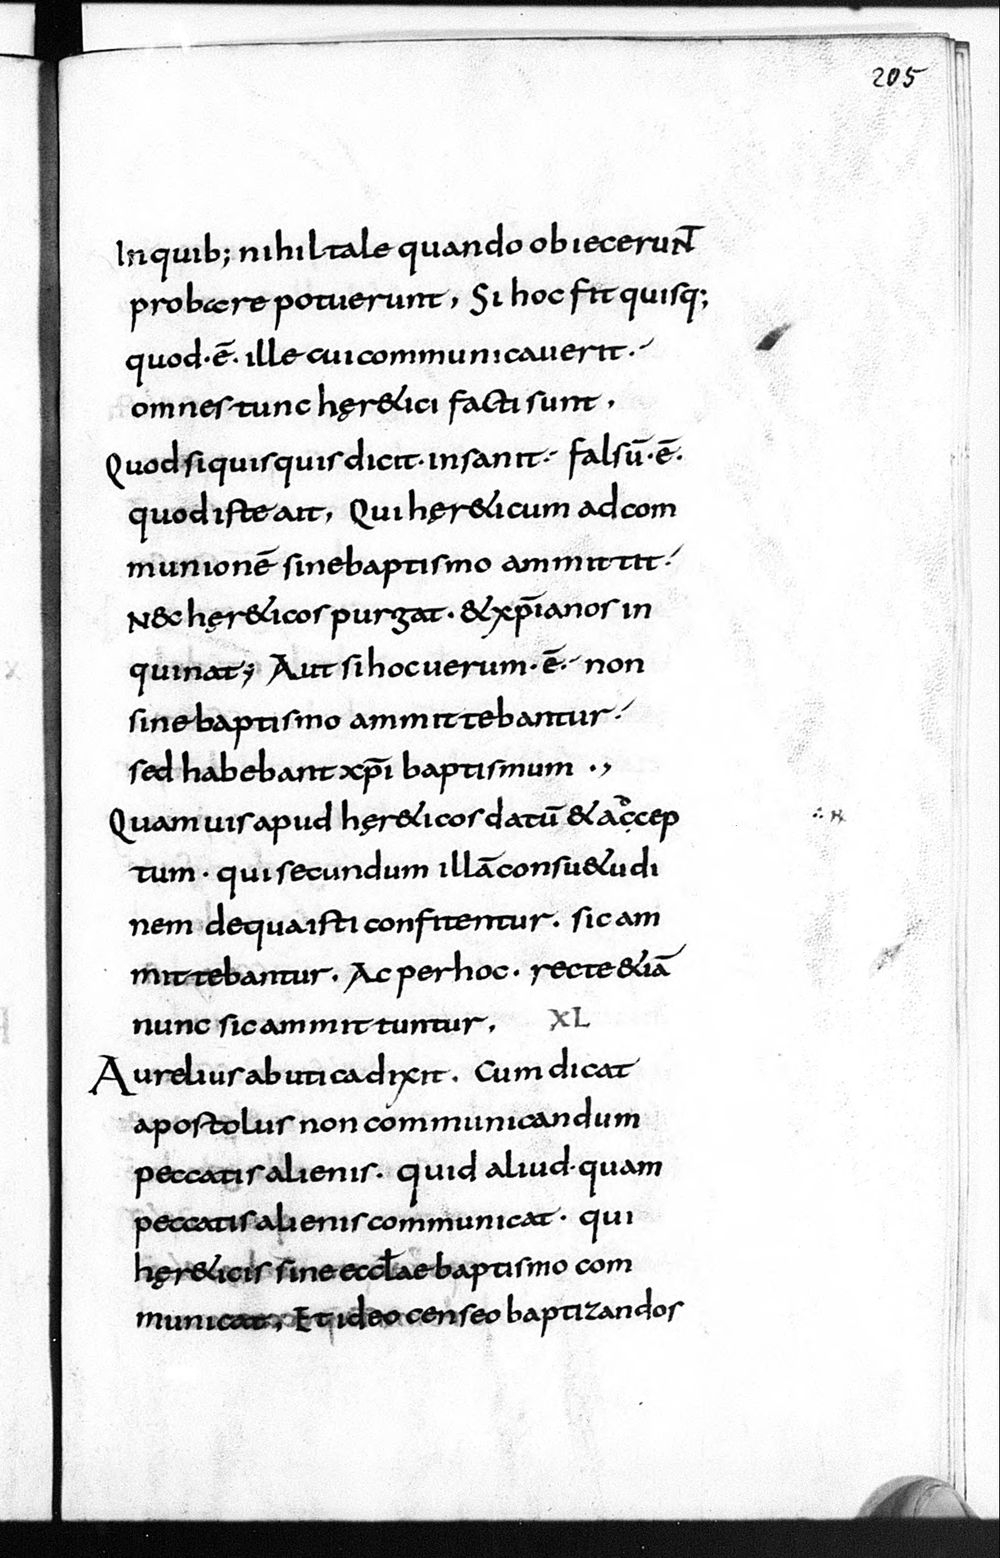 205
Inquib; nihil tale quando obiecerunt
probare potuerunt, Si hoc fit quisq;
quod·ē· ille cui communicauerit·
omnes tunc hęr&ici facti sunt,
Quod si quisquis dicit· insanit· falsū·ē·
quod iste ait, Qui hęr&icum ad com
munionē sine baptismo ammittit·
N&c hęr&icos purgat· & xp̄ianos in
quinat; Aut si hoc uerum·ē· non
sine baptismo ammittebantur·
sed habebant xp̄i baptismum ·,
Quamuis apud hęr&icos datū & accep
tum· qui secundum illā consu&udi
nem de qua isti confitentur. sic am
mittebantur. Ac per hoc· recte &iā
nunc sic ammittuntur, XL
Aurelius ab utica dixit. Cum dicat
apostolus non communicandum
peccatis alienis. quid aliud·quam
peccatis alienis communicat· qui
hęr&icis sine eccl̄ae baptismo com
municat, Et ideo censeo baptizandos